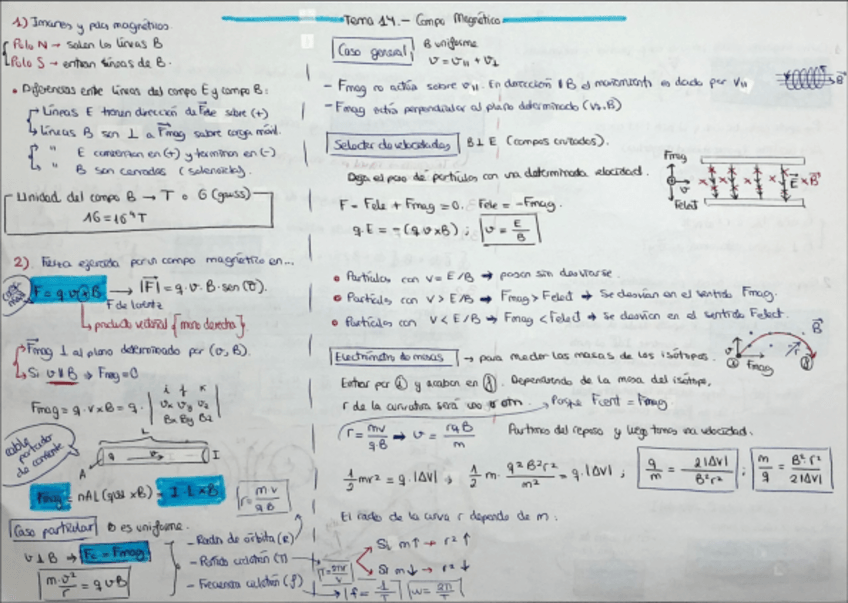 Tema 14.- Campo Magnético
1) Imanes y polos magnéticos
Polo N → salen las líneas B
Polo S → entran líneas de B.
• Diferencias entre líneas del campo E y campo B:
Líneas E tienen dirección de Fele sobre (+)
Líneas B son ⊥ a Fmag sobre carga móvil.
" E comienzan en (+) y terminan en (-)
" B son cerradas (solenoide).
Unidad del campo B → T o G (gauss)
1G = 10⁻⁴ T
2) Fuerza ejercida por un campo magnético en...
F = q · v × B → |F| = q · v · B · sen(θ).
F de Lorentz
producto vectorial {mano derecha}
Fmag ⊥ al plano determinado por (v, B).
Si v ∥ B → Fmag = 0
Fmag = q · v × B = q ·
i j k
vx vy vz
Bx By Bz
cable portador de corriente
L
q
I
A
Fmag = nAL(qvd × B) = I · L × B
r = mv / qB
Caso particular B es uniforme.
v ⊥ B → Fc = Fmag
m · v² / r = q v B
- Radio de órbita (r)
- Período ciclotrón (T)
- Frecuencia ciclotrón (f)
T = 2πr / v
f = 1 / T
w = 2π / T
Caso general B uniforme
v = v∥ + v⊥
- Fmag no actúa sobre v∥. En dirección ∥ B el movimiento es dado por v∥
- Fmag actúa perpendicular al plano determinado (v, B)
B
Selector de velocidades B ⊥ E (campos cruzados).
Deja el paso de partículas con una determinada velocidad.
F = Fele + Fmag = 0. Fele = -Fmag.
q · E = -(q v × B) ; v = E / B
Fmag
v
Felect
E × B
• Partículas con v = E/B → pasan sin desviarse.
• Partículas con v > E/B → Fmag > Felect → Se desvían en el sentido Fmag.
• Partículas con v < E/B → Fmag < Felect → Se desvían en el sentido Felect.
Espectrómetro de masas → para medir las masas de los isótopos.
B
v
r
Fmag
Entran por ① y acaban en ②. Dependiendo de la masa del isótopo,
r de la curvatura será uno u otro. → Porque Fcent = Fmag
r = mv / qB → v = rqB / m
Partimos del reposo y luego toman una velocidad.
½ mv² = q · |ΔV| ; ½ m · q²B²r² / m² = q · |ΔV| ; q / m = 2|ΔV| / B²r² ; m / q = B² · r² / 2|ΔV|
El radio de la curva r depende de m:
Si m↑ → r² ↑
Si m↓ → r² ↓